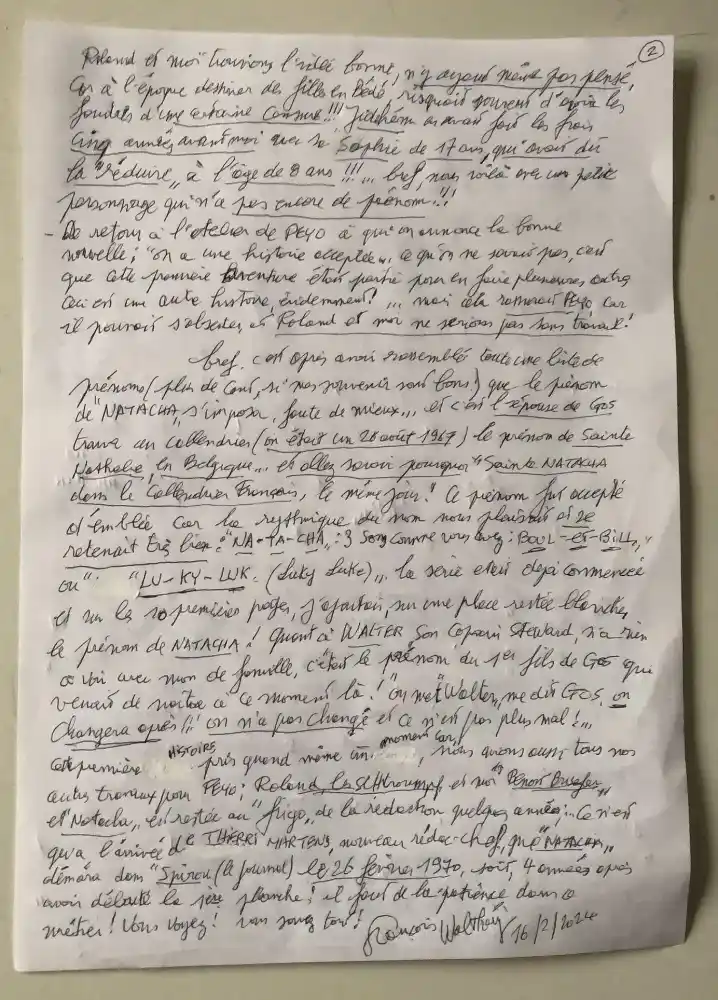 2
Roland et moi trouvions l'idée bonne, n'y ayant même pas pensé,
Car à l'époque dessiner des filles en Bédé, risquait souvent d'avoir les
foudres d'une certaine Censure!!! Jidéhem en avait fait les frais
Cinq années avant moi avec sa "Sophie de 17 ans, qui avait dû
la "réduire" à l'âge de 8 ans!!!... bref, nous voilà avec un petit
personnage qui n'a pas encore de prénom!!!
- De retour à l'atelier de PEYO à qui on annonce la bonne
nouvelle; "on a une histoire acceptée", ce qu'on ne savait pas, c'est
que cette première aventure était partie pour en faire plusieurs autres
Ceci est une autre histoire, évidemment!... mais cela rassurait Peyo car
il pouvait s'absenter, et Roland et moi ne serions pas sans travail!
bref, c'est après avoir rassemblé toute une liste de
prénoms (plus de Cent, si mes souvenir sont bons!) que le prénom
de "NATACHA" s'imposa, faute de mieux... et c'est l'épouse de Gos
trouva un callendrier (on était un 26 août 1967) le prénom de Sainte
Nathalie, en Belgique... et allez savoir pourquoi "Sainte NATACHA
dans le Callendrier Français, le même jour! Ce prénom fut accepté
d'emblée car la rythmique du nom nous plaisait et se
retenait très bien: "NA-TA-CHA", 3 sons comme vous avez: BOUL-et-BILL",
ou "LU-KY-LUK. (Luky Luke)", la série était déjà commencée
et sur les 10 premières pages, j'ajoutais, sur une place restée blanche,
le prénom de NATACHA! Quant à WALTER son Copain Steward, n'a rien
à voir avec mon de famille, c'était le prénom du 1er fils de Gos qui
venait de naître à ce moment là! "on met Walter, me dit GOS, on
Changera après!!! on n'a pas changé et ce n'est pas plus mal!...
Cette première HISTOIRE pris quand même un moment car, nous avions aussi tous nos
autres travaux pour PEYO; Roland, les SCHtroumpf, et moi "Benoit Brisefer"
et "Natacha", est restée au "frigo" de la rédaction quelques années... Ce n'est
qu'à l'arrivée de THIERRI MARTENS, nouveau rédac-chef, que "NATACHA"
démara dans "Spirou (le journal) le 26 février 1970, soit, 4 années après
avoir débuté la 1ère planche; il faut de la patience dans ce
métier! Vous voyez! vous savez tout!
François Walthéry 16/2/2024